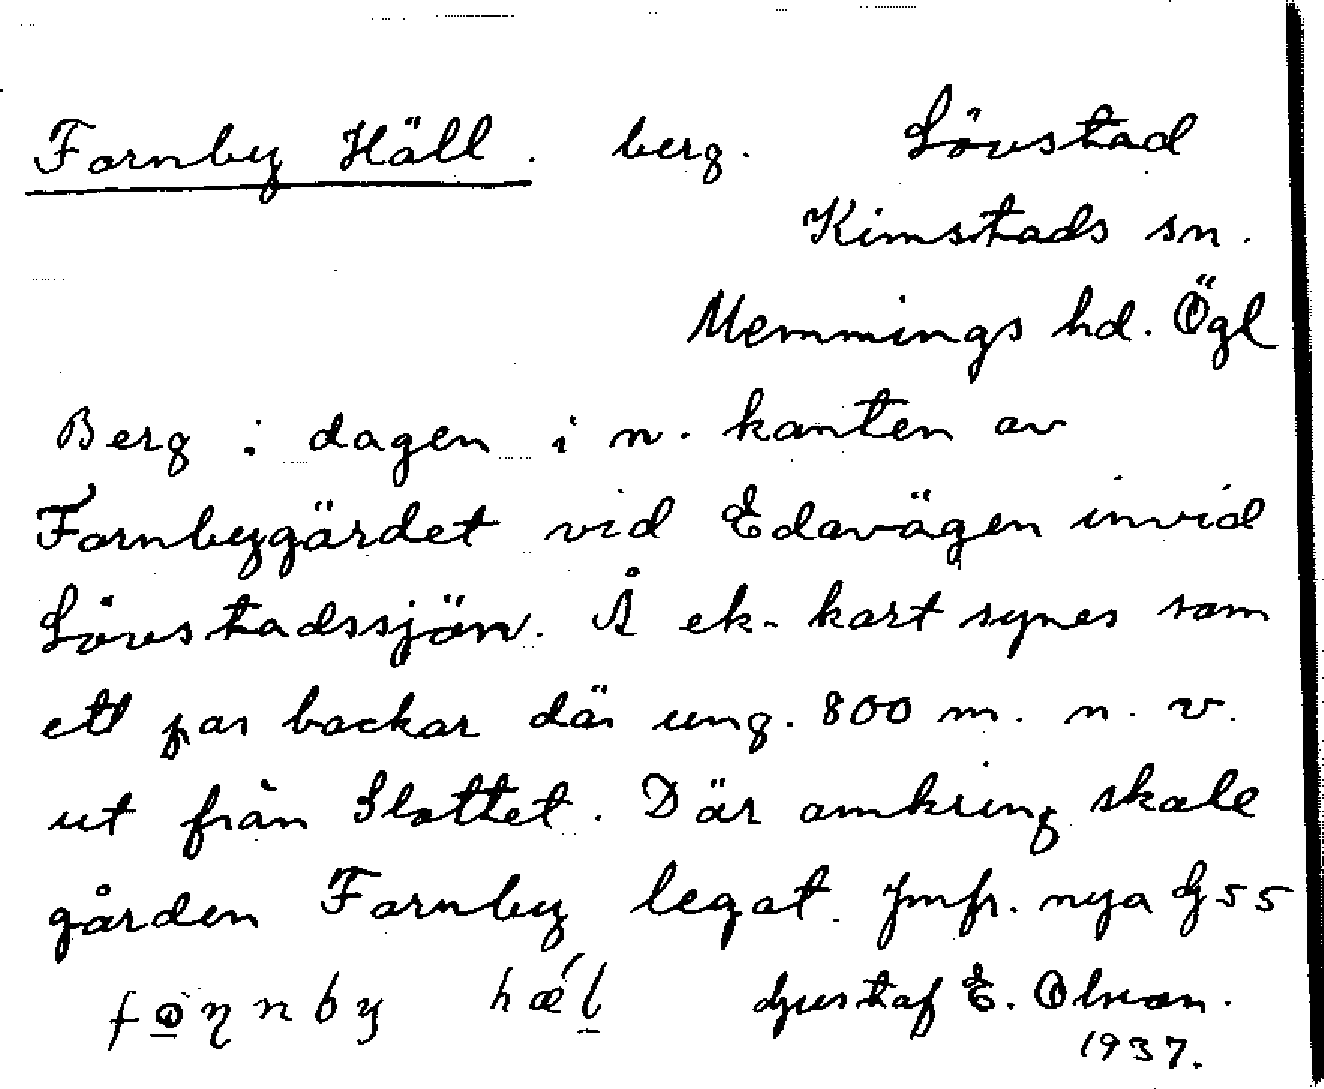 Fornby Häll. berg. Lövstad
Kimstads sn.
Memmings hd. Ögl
Berg i dagen i n. kanten av
Fornbygärdet vid Edavägen invid
Lövstadssjön. Å ek. kart synes som
ett par backar där ung. 800 m. n. v.
ut från Slottet. Där omkring skole
gården Fornby legat. Jmfr. nya G 55
hæ´l Gustaf E. Olson.
1937.